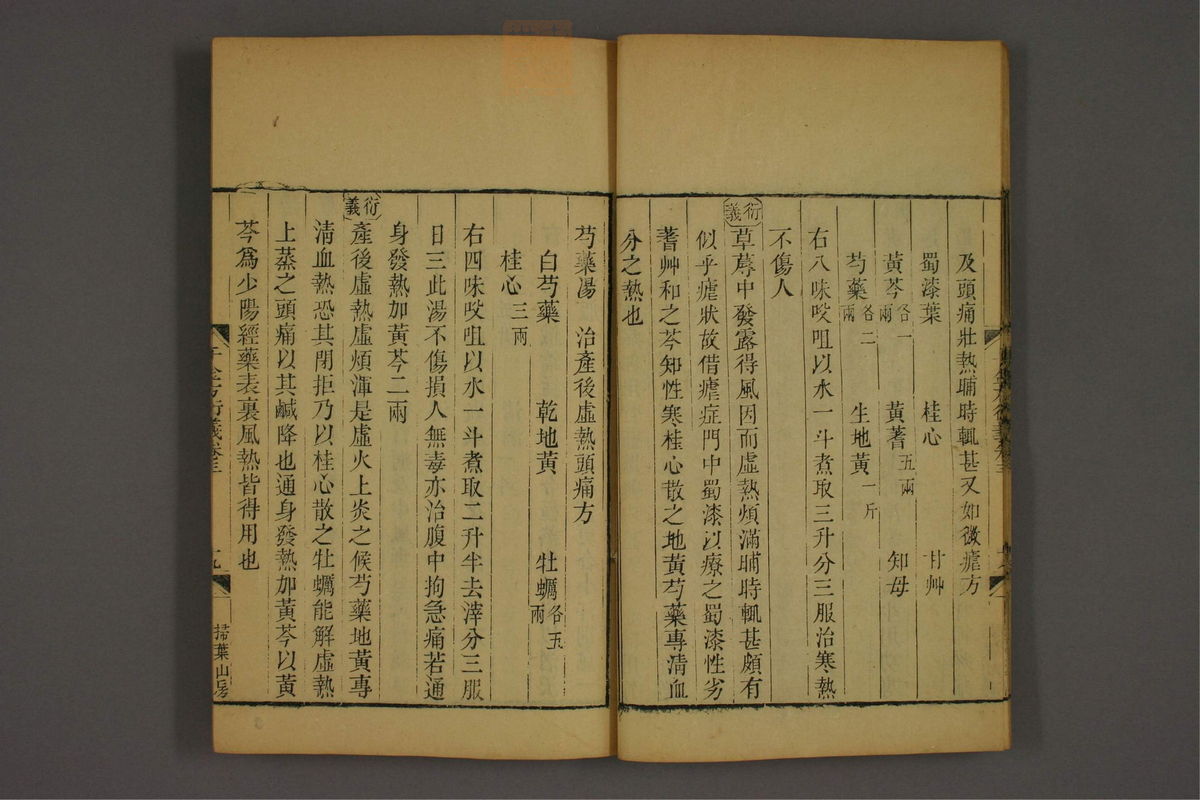 及頭痛壯熱晡時輒甚又如微瘧方
蜀漆葉　桂心　甘艸
黃芩各一兩　黃蓍五兩　知母
芍藥各二兩　生地黃一斤
右八味㕮咀以水一斗煮取三升分三服治寒熱
不傷人
衍義
草蓐中發露得風因而虛熱煩滿晡時輒甚頗有
似乎瘧狀故借瘧症門中蜀漆以療之蜀漆性劣
蓍艸和之芩知性寒桂心散之地黃芍藥專清血
分之熱也
芍藥湯　治產後虛熱頭痛方
白芍藥　乾地黃　牡蠣各五兩
桂心三兩
右四味㕮咀以水一斗煮取二升半去滓分三服
日三此湯不傷損人無毒亦治腹中拘急痛若通
身發熱加黃芩二兩
衍義
產後虛熱虛煩渾是虛火上炎之候芍藥地黃專
清血熱恐其閉拒乃以桂心散之牡蠣能解虛熱
上蒸之頭痛以其鹹降也通身發熱加黃芩以黃
芩爲少陽經藥表裏風熱皆得用也
千金方衍義卷三
掃葉山房